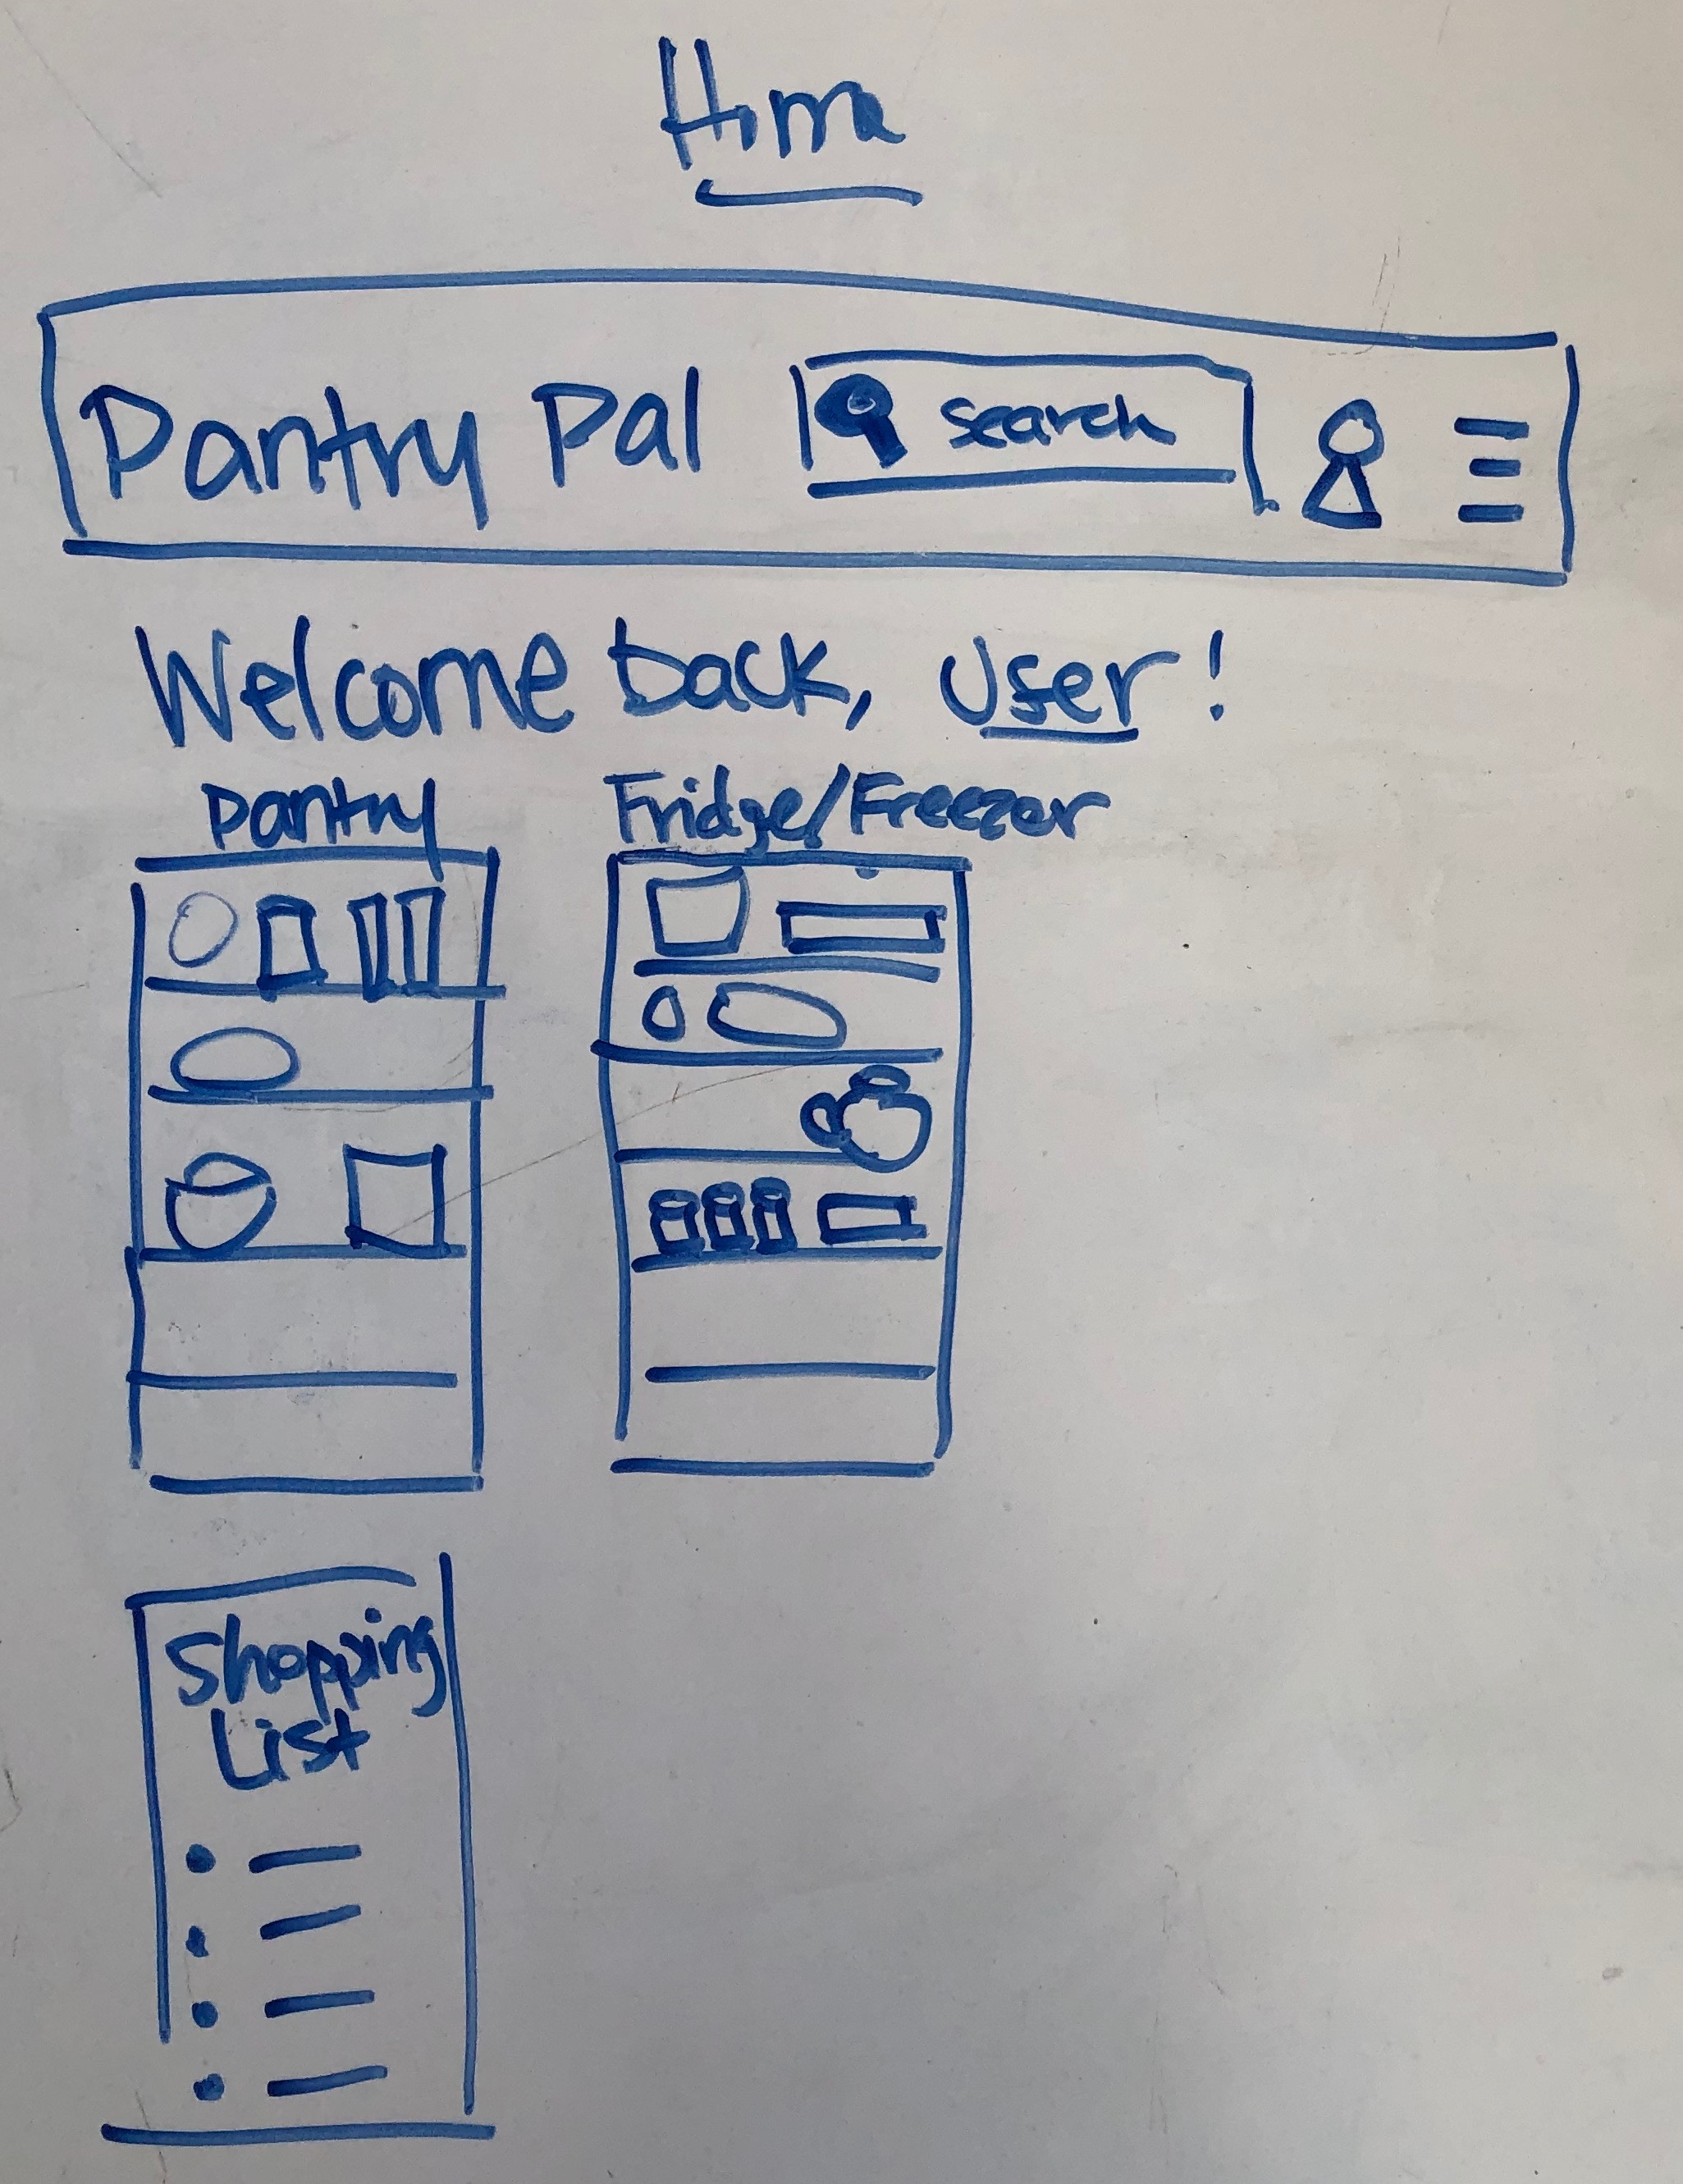 Pantry Pal search
Welcome back, User!
Pantry Fridge/Freezer
Shopping
List